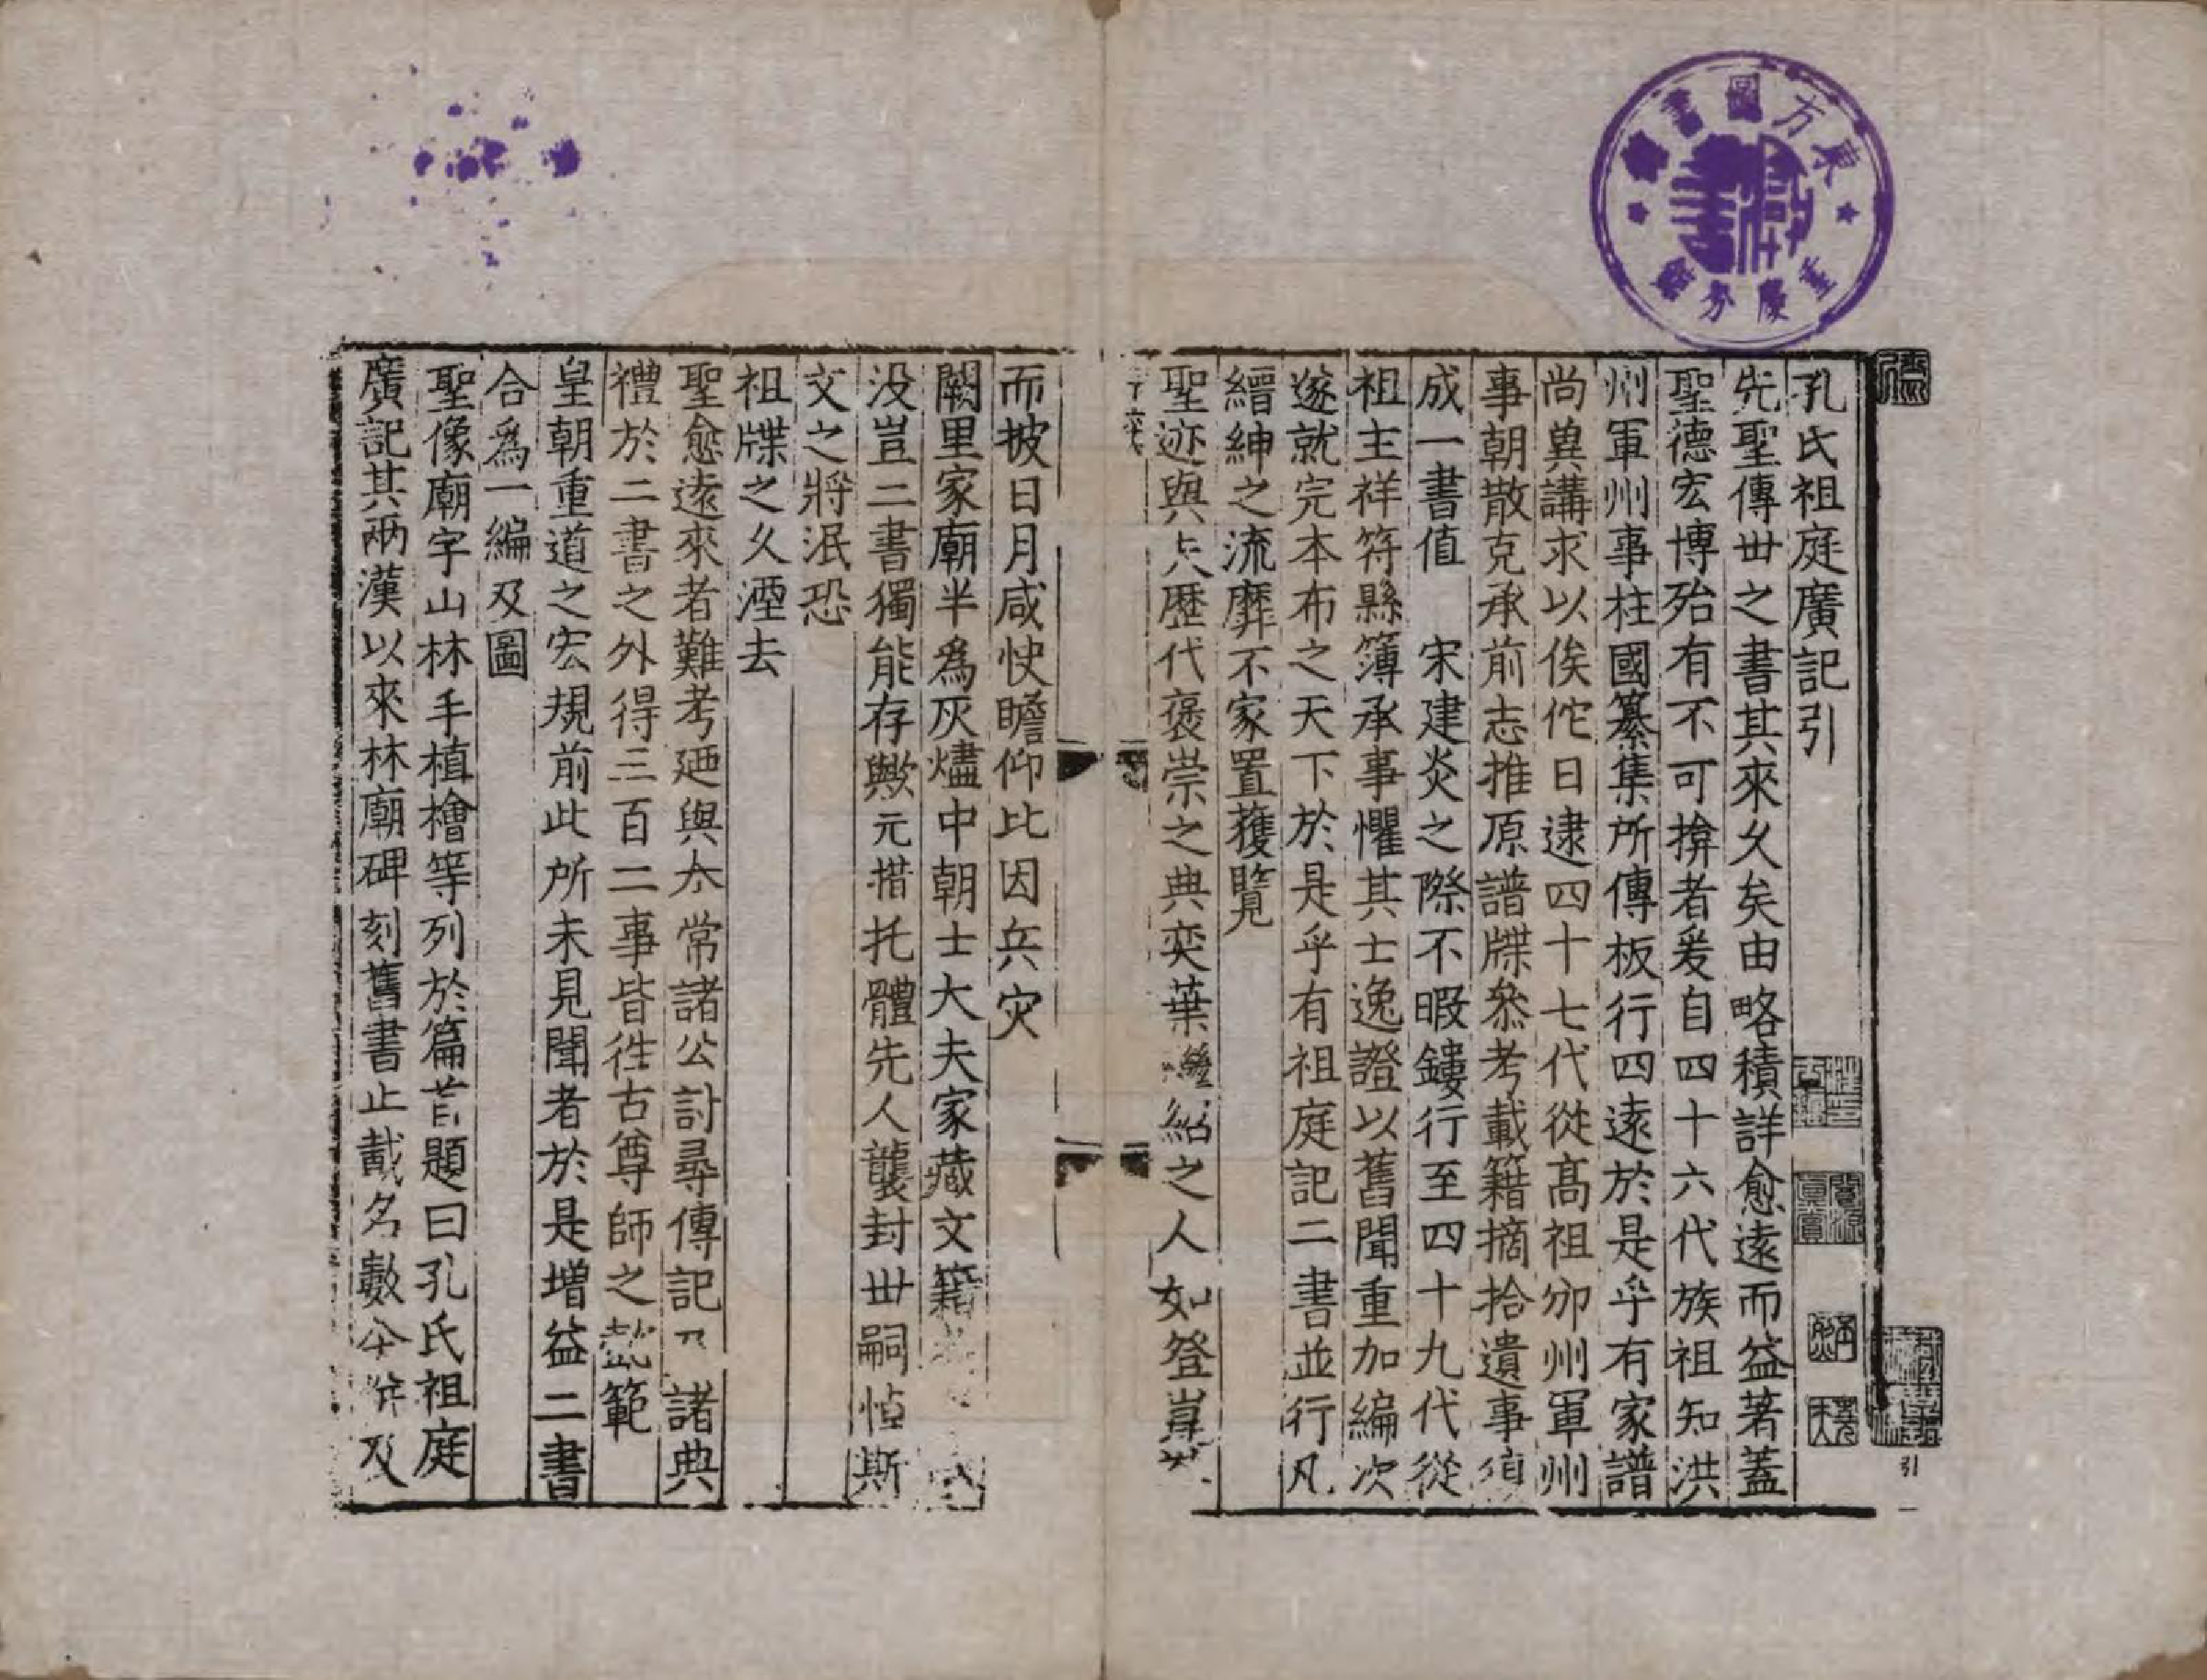 東方圖書館
重慶分館
孔氏祖庭廣記引
先聖傳世之書其來久矣由略積詳愈遠而益著蓋
聖德宏博殆有不可揜者爰自四十六代族祖知洪
州軍州事柱國纂集所傳板行四遠於是乎有家譜
尚冀講求以俟佗日逮四十七代從高祖邠州軍州
事朝散克承前志推原譜牒叅考載籍摘拾遺事
成一書值　宋建炎之際不暇鏤行至四十九代從
祖主祥符縣簿承事懼其亡逸證以舊聞重加編次
遂就完本布之天下於是乎有祖庭記二書並行凡
縉紳之流靡不家置獲覽
聖迹與夫歷代褒崇之典奕葉繼紹之人如登崑
而披日月咸快瞻仰比因兵灾
闕里家廟半爲灰燼中朝士大夫家藏文籍
没豈二書獨能存歟元措托體先人襲封世嗣悼斯
文之將泯恐
祖牒之久湮去
聖愈遠來者難考迺與太常諸公討尋傳記及諸典
禮於二書之外得三百二事皆徃古尊師之懿範
皇朝重道之宏規前此所未見聞者於是增益二書
合爲一編及圖
聖像廟宇山林手植檜等列於篇首題曰孔氏祖庭
廣記其兩漢以來林廟碑刻舊書止載名數今併及
引
一